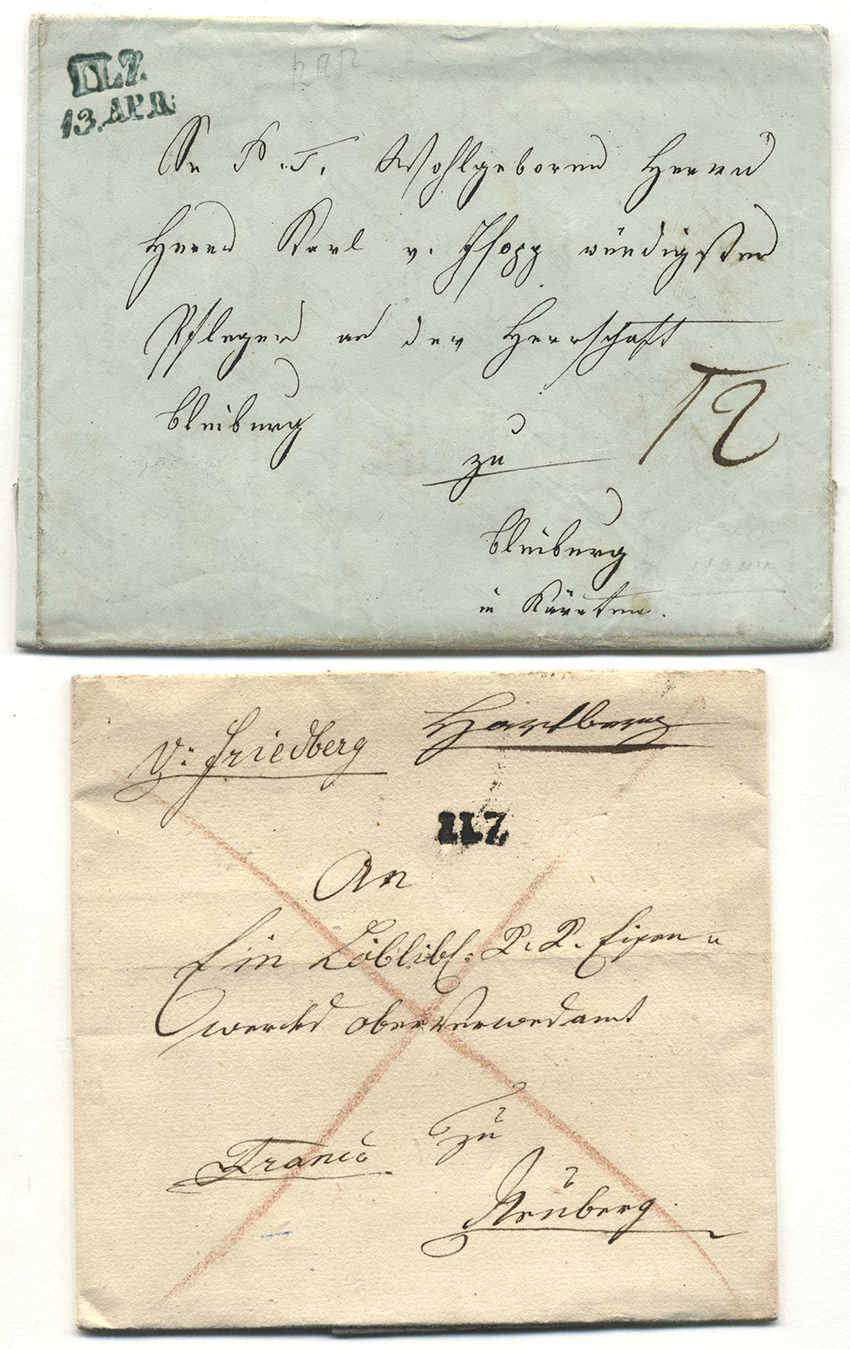 ILZ.
13. APR:
Sr P. T. Wohlgeboren Herrn
Herrn Karl v. Isopp würdigster
Pfleger an der Herrschaft
Bleiburg
12
zu
Bleiburg
in Kärnten.
V: Friedberg Hartberg
ILZ
An
Ein Löblich: K. K. Eisen-
werks oberverwesamt
Franco zu
Neuberg